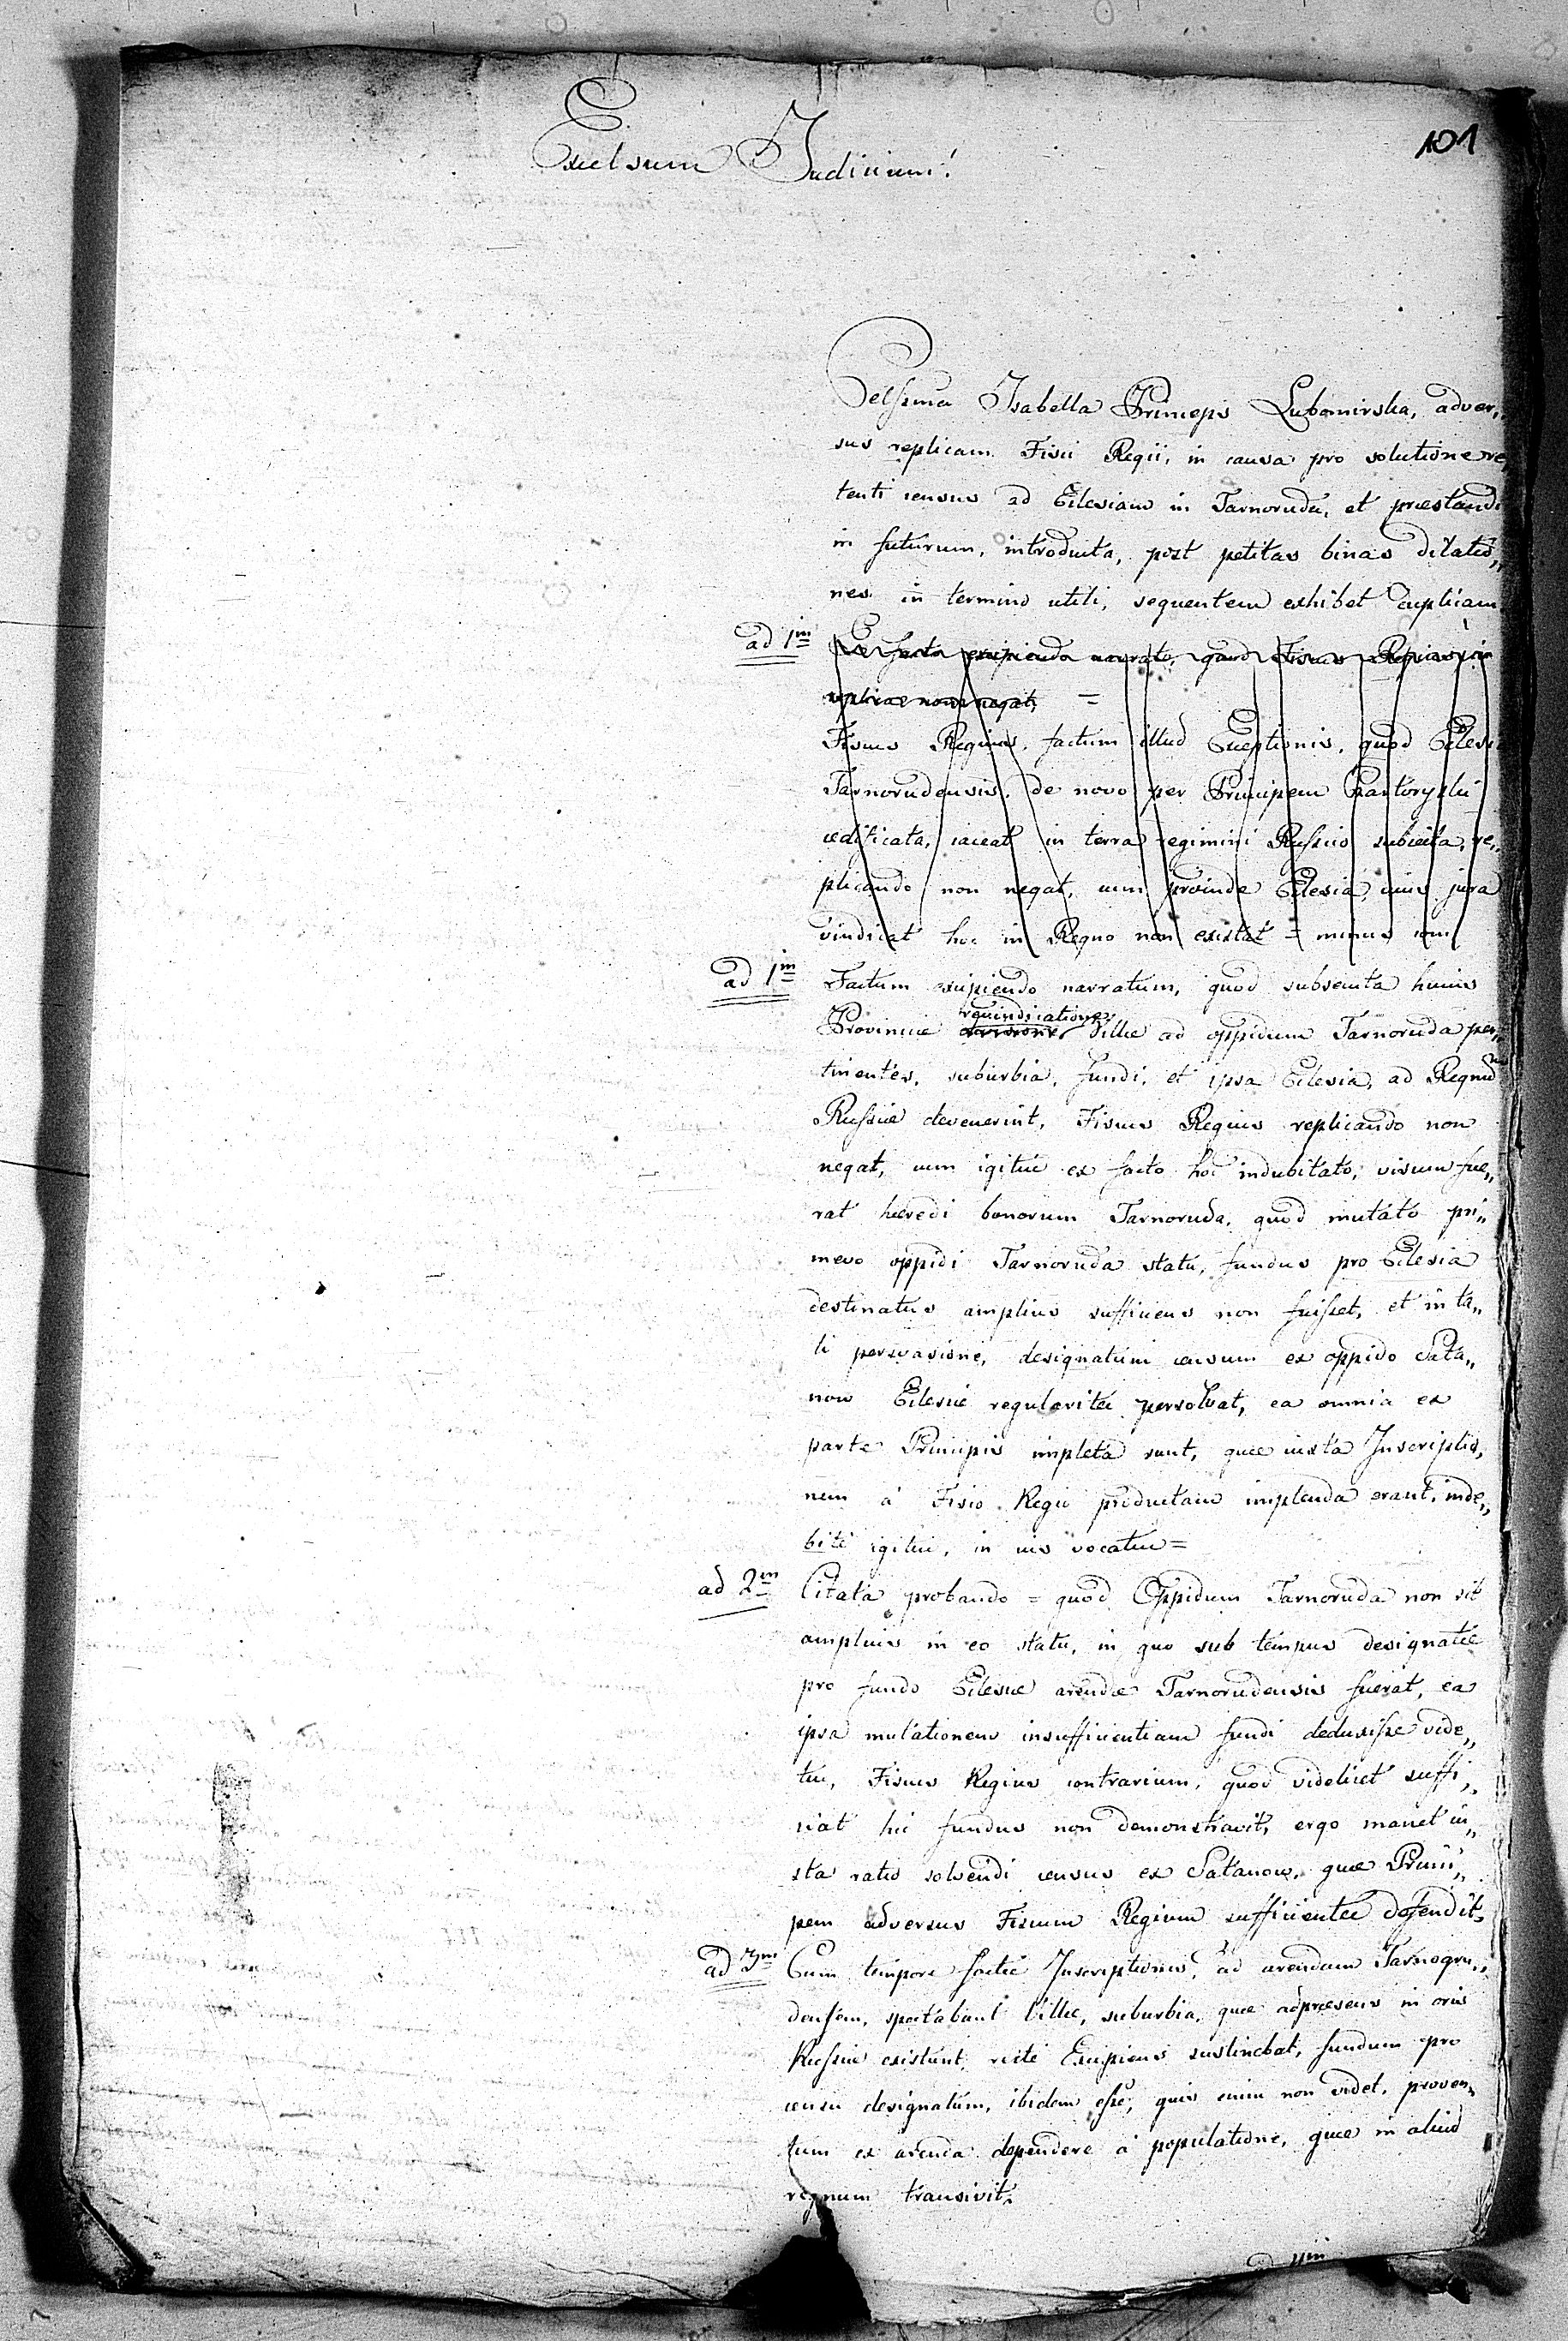 101
Excelsum Judicium!
Celsima Isabella Princeps Lubomirska, adver„
sus replicam Fisci Regii, in causa pro solutione re
tenti census ad Eclesiam in Tarnoruda, et præstandi
in futurum, introducta, post petitas binas dilatio„
nes in termino utili, sequentem exhibet duplicam
ad 1m Ex facto excipiendo narrato, quod Fiscus Regius in
replica non negat, =
Fiscus Regius, factum illud Exceptionis, quod Eclesia
Tarnorudensis, de novo per Principem Czartoryski
ædificata, iaceat in terra regimini Russico subiecta, re„
plicando non negat, cum proinde Eclesia, cuius jura
vindicat hoc in Regno non existat = minus cum
ad 1m Factum excipiendo narratum, quod subsecuta huius
Provinciæ revindicatione Villæ ad oppidum Tarnoruda per„
tinentes, suburbia, fundi, et ipsa Eclesia, ad Regnum
Russiæ devenerint, Fiscus Regius replicando non
negat, cum igitur ex facto hoc indubitato, visum fue„
rat hæredi bonorum Tarnoruda, quod mutato pri„
mevo oppidi Tarnoruda statu, fundus pro Eclesia
destinatus amplius sufficiens non fuisset, et in ta„
li persvasione, designatum censum ex oppido Sata„
now Eclesiæ regulariter persolvat, ea omnia ex
parte Principis impleta sunt, quæ iuxta Inscriptio„
nem à Fisco Regio productam implenda erant, inde„
bite igitur, in ius vocatur =
ad 2m Citata probando = quod Oppidum Tarnoruda non sit
amplius in eo statu, in quo sub tempus designatæ
pro fundo Eclesiæ arendæ Tarnorudensis fuerat, ea
ipsa mutationem insufficientiam fundi deduxisse vide„
tur, Fiscus Regius contrarium, quod videlicet suffi„
ciat hic fundus non demonstravit, ergo manet iu„
sta ratio solvendi census ex Satanow, quæ Princi„
pem adversus Fiscum Regium sufficienter defendit.
ad 3m Cum tempore factæ Inscriptionis, ad arendam Tarnogru„
densem, spectabant Villæ, suburbia, quæ adpræsens in oris
Russiæ existunt, recte Excipiens sustinebat, fundum pro
censu designatum, ibidem esse, quis enim non videt, proven„
tum ex arenda dependere à populatione, quæ in aliud
regnum transivit.